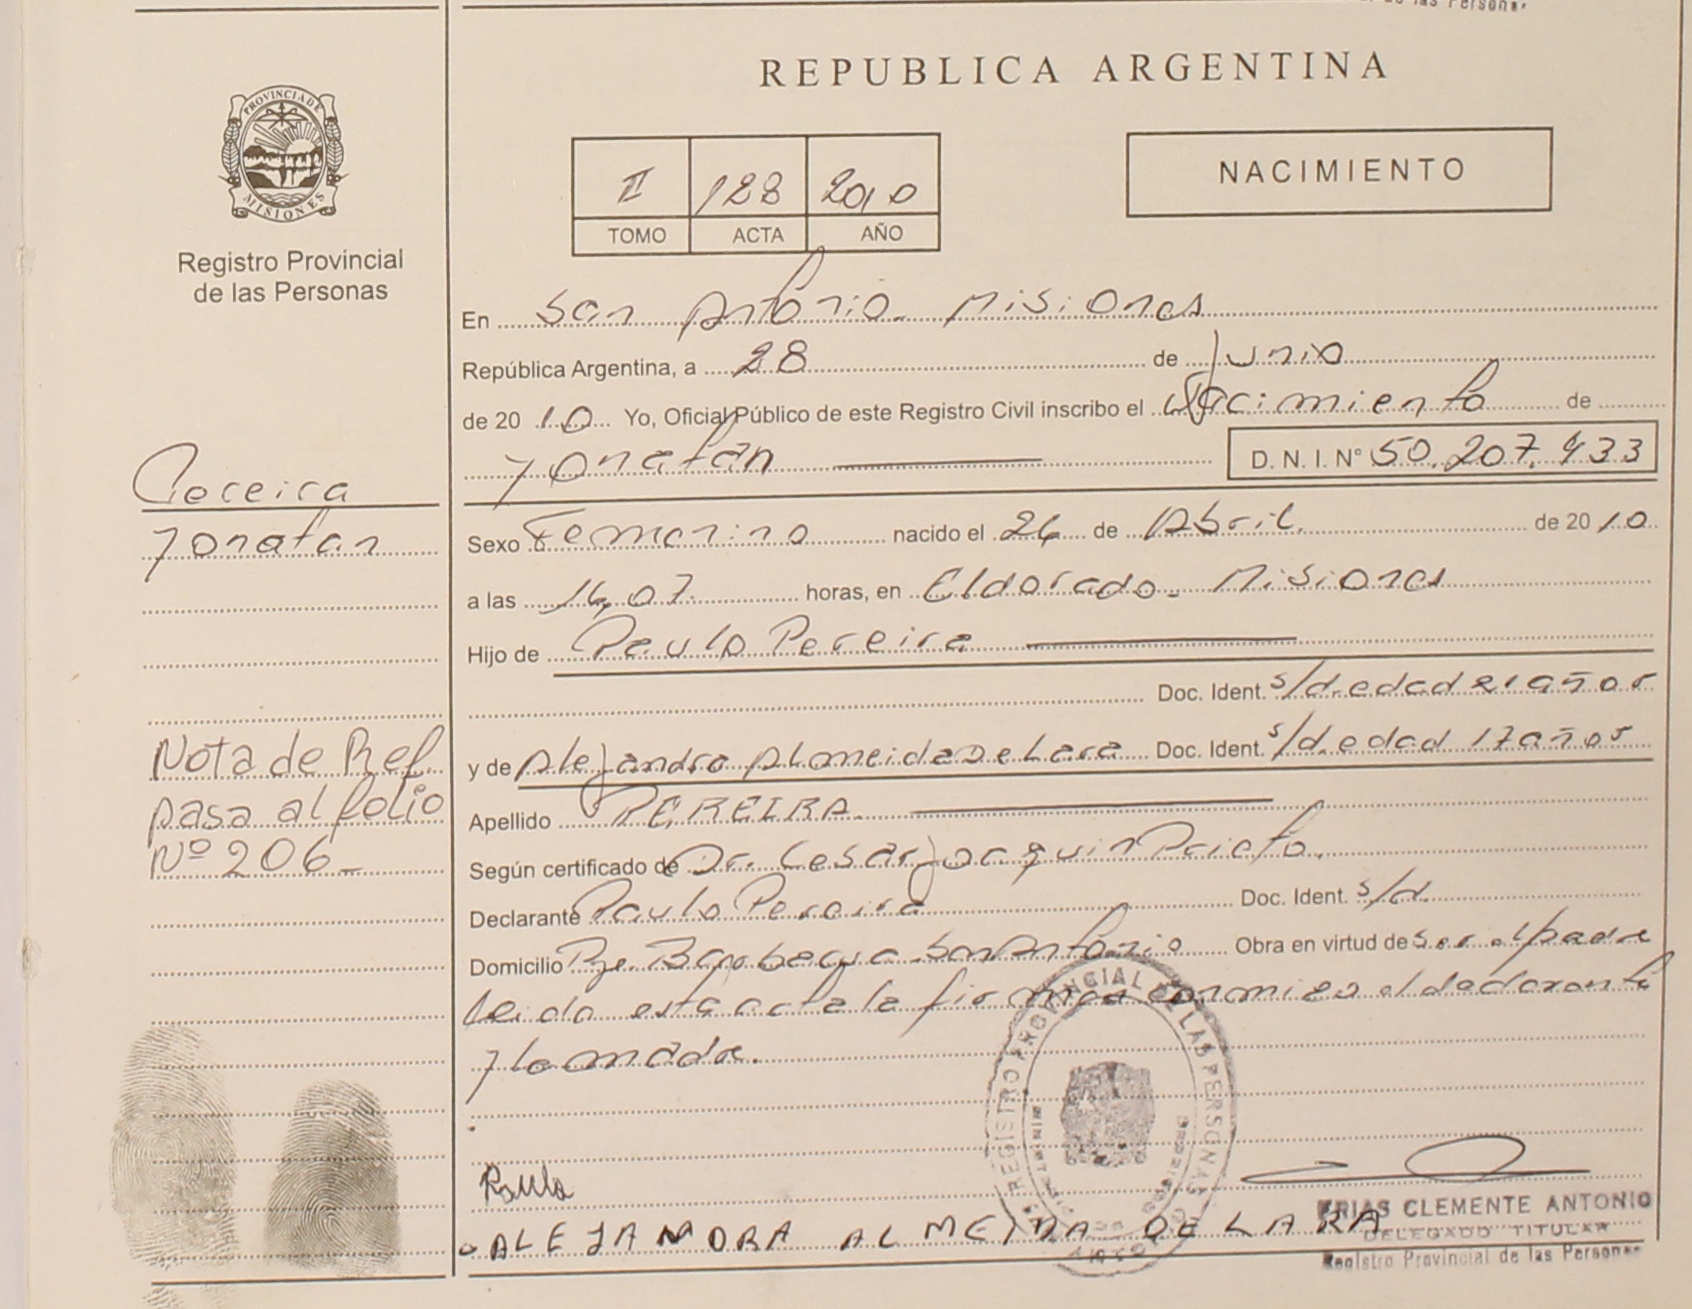 REPUBLICA ARGENTINA
PROVINCIA DE
MISIONES
Registro Provincial
de las Personas
II 128 2010
TOMO ACTA AÑO
NACIMIENTO
En San Antonio - Misiones
República Argentina, a 28 de Junio
de 2010 Yo, Oficial Público de este Registro Civil inscribo el Nacimiento de
Jonatan D. N. I. N° 50.207.433
Pereira
Jonatan
Sexo Femenino nacido el 26 de Abril. de 2010
a las 16,07. horas, en Eldorado - Misiones
Hijo de Paulo Pereira
Doc. Ident. s/d. edad 21 años
y de Alejandra Almeida De Lara Doc. Ident. s/d. edad 17 años
Apellido PEREIRA
Nota de Ref.
pasa al folio
Nº 206-
Según certificado de Dr. Cesar Joaquin Prieto.
Declarante Paulo Pereira Doc. Ident. s/d.
Domicilio San Antonio Obra en virtud de ser el padre
Leida esta acta la firman conmigo el declarante
y la madre.
REGISTRO PROVINCIAL DE LAS PERSONAS
Paulo
ALEJANDRA ALMEIDA DE LARA
FRIAS CLEMENTE ANTONIO
DELEGADO TITULAR
Registro Provincial de las Personas